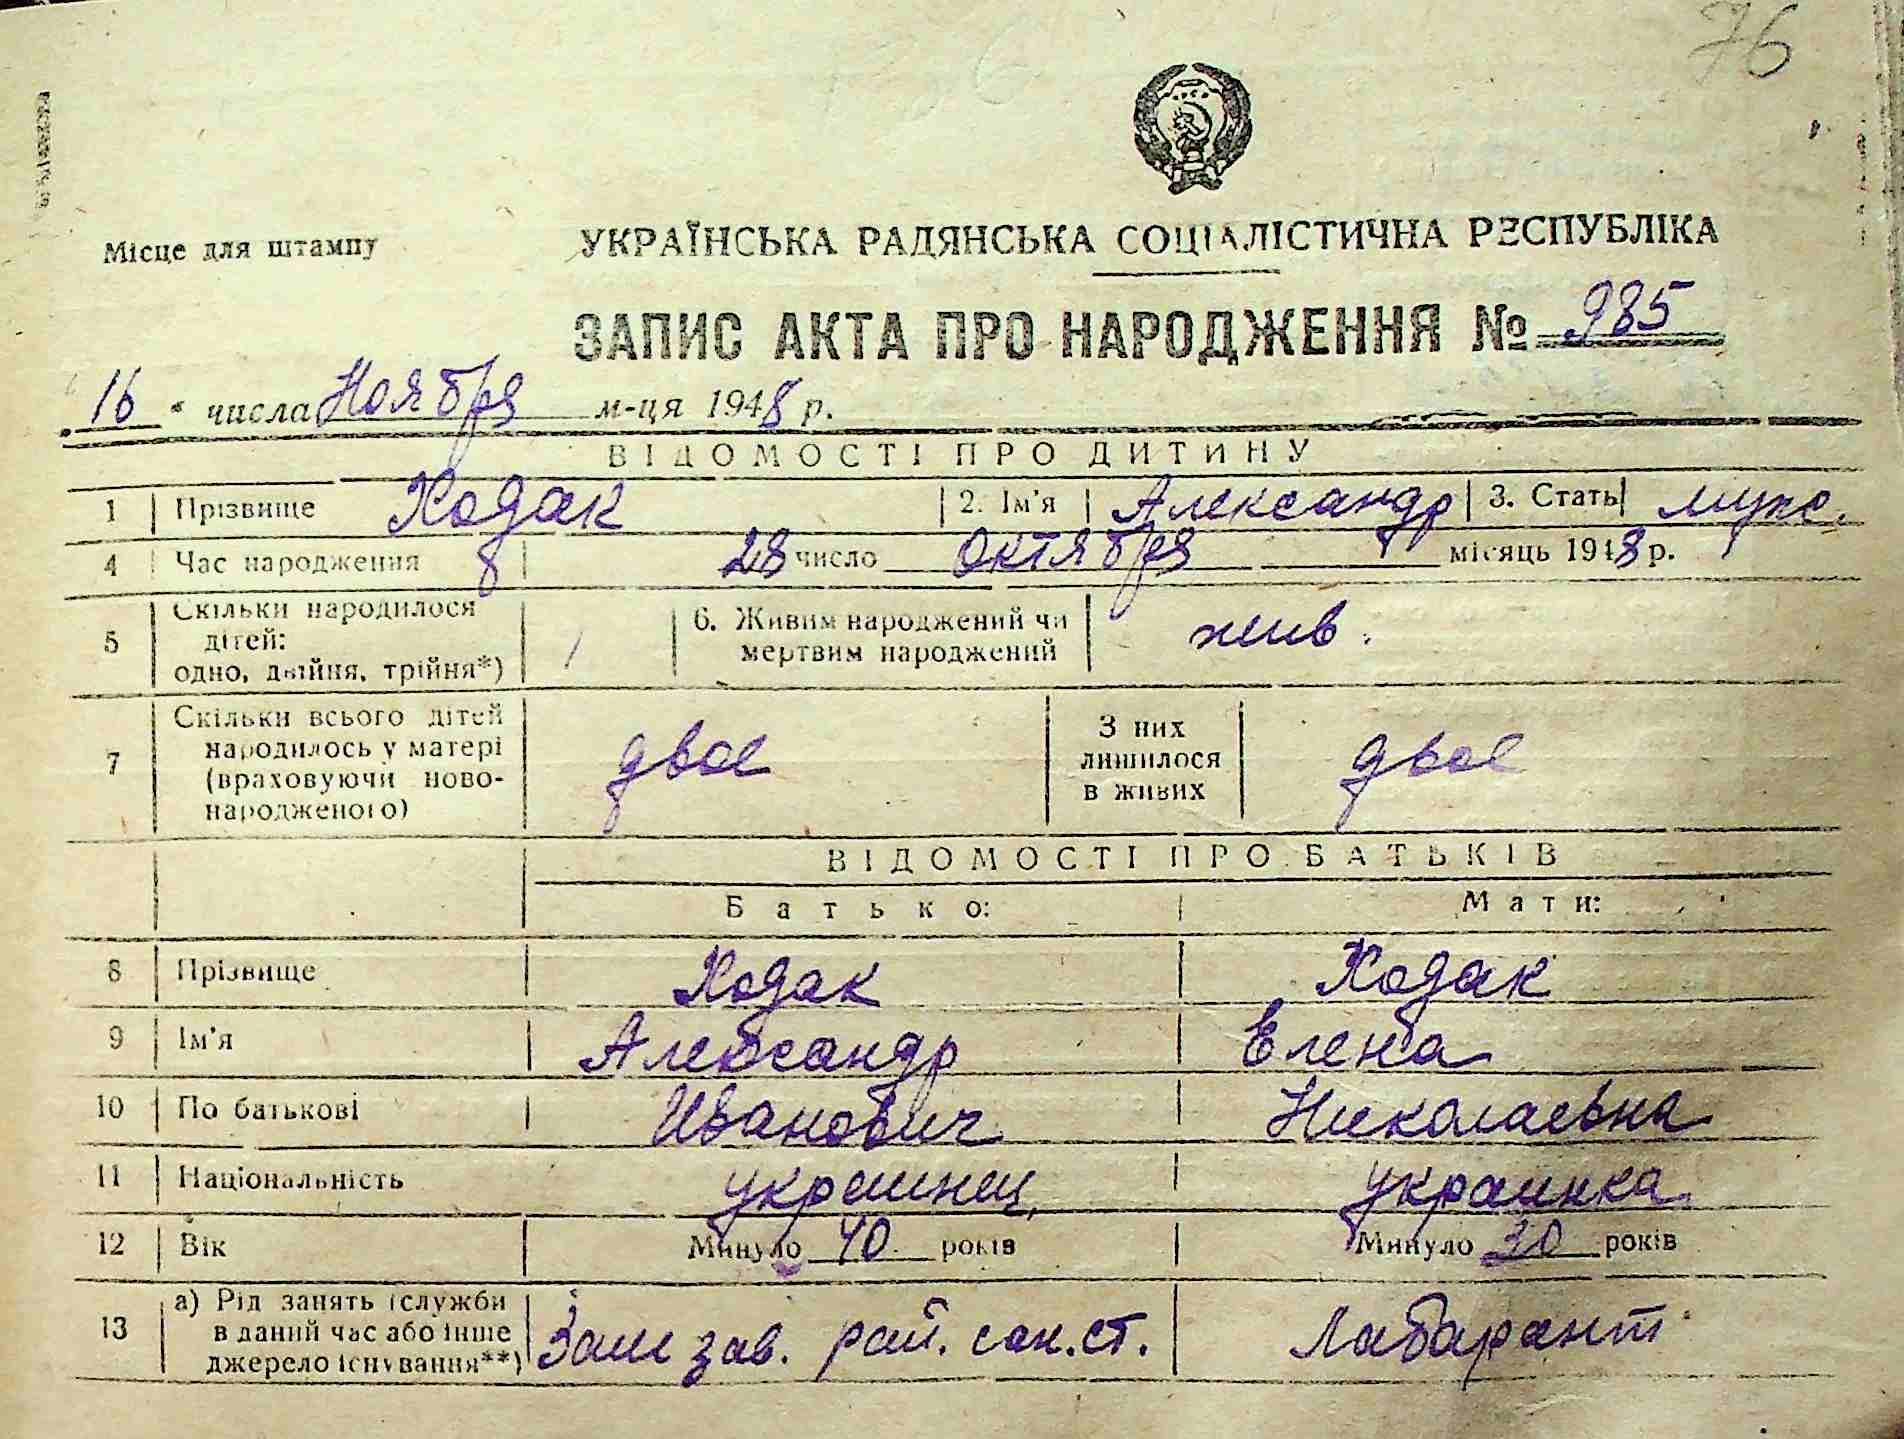 76
Місце для штампу
УКРАЇНСЬКА РАДЯНСЬКА СОЦІАЛІСТИЧНА РЕСПУБЛІКА
ЗАПИС АКТА ПРО НАРОДЖЕННЯ № 985
"16" числа Ноября м-ця 1948 р.
ВІДОМОСТІ ПРО ДИТИНУ
1 Прізвище Ходак 2. Ім'я Александр 3. Стать муж.
4 Час народження 28 число октября місяць 1948 р.
5 Скільки народилося дітей: одно, двійня, трійня*) 1 6. Живим народжений чи мертвим народжений жив.
7 Скільки всього дітей народилось у матері (враховуючи новонародженого) двое З них лишилося в живих двое
ВІДОМОСТІ ПРО БАТЬКІВ
Батько: Мати:
8 Прізвище Ходак Ходак
9 Ім'я Александр Елена
10 По батькові Иванович Николаевна
11 Національність украинец украинка
12 Вік Минуло 40 років Минуло 30 років
13 а) Рід занять (служби в даний час або інше джерело існування**) Зам зав. рай. сан.ст. Лабарант